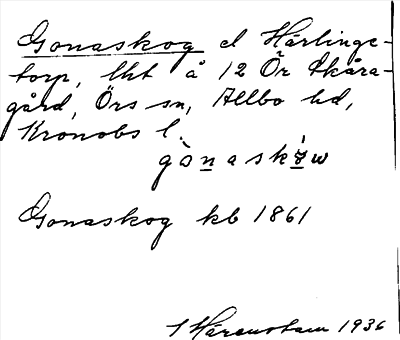 Gonaskog el Härlinge-
torp, lht å 12 Ör Skåra-
gård, Örs sn, Allbo hd,
Kronobs l.
gònasków
Gonaskog kb 1861
1936